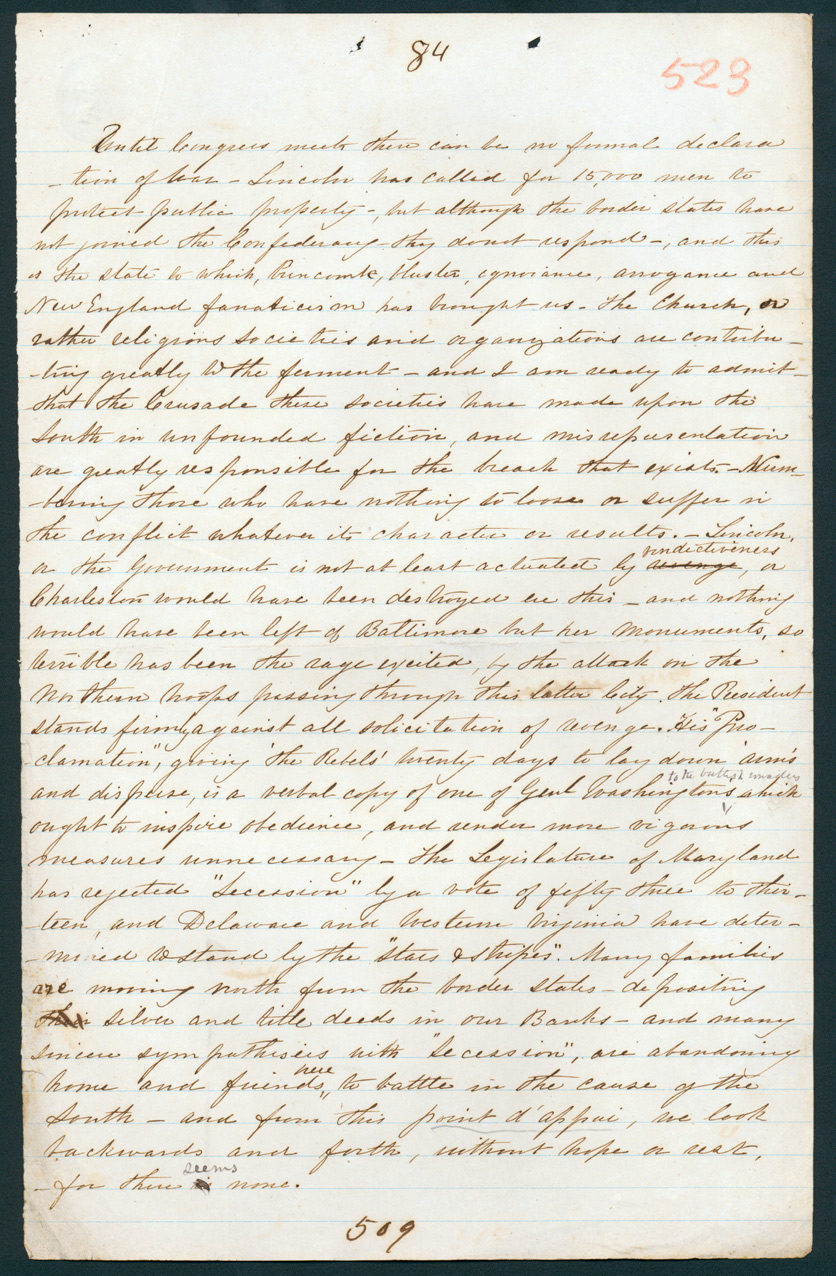 84
523
Until Congress meets there can be no formal declara
-tion of war - Lincoln has called for 15,000 men to
protect public property -, but although the border states have
not joined the Confederacy - they do not respond -, and this
is the state to which, Buncombe, bluster, ignorance, arrogance and
New England fanaticism has brought us - The Church, or
rather religious societies and organizations are contribu-
-ting greatly to the ferment - and I am ready to admit-
-that the Crusade these societies have made upon the
South in unfounded fiction, and misrepresentation
are greatly responsible for the breach that exists. - Num-
-bering those who have nothing to loose or suffer in
the conflict whatever its character or results. - Lincoln,
vindictiveness
or the Government is not at least actuated by revenge, or
Charleston would have been destroyed ere this - and nothing
would have been left of Baltimore but her monuments, so
terrible has been the rage excited, by the attack on the
Northern troops passing through this latter City. The President
stands firmly against all solicitation of revenge. His "Pro-
clamation", giving 'the Rebels' twenty days to lay down arms
to the british
and disperse, is a verbal copy of one of Genl Washingtons which
ought to inspire obedience, and render more vigorous
measures unnecessary - The Legislature of Maryland
has rejected "Secession" by a vote of fifty three to thir-
-teen, and Delaware and Western Virginia have deter-
-mined to stand by the "Stars & stripes". Many families
are moving north from the border states - depositing
their silver and title deeds in our Banks - and many
sincere sympathisers with "Secession", are abandoning
here
home and friends, to battle in the cause of the
South - and from this point d'appui, we look
backwards and forth, without hope or rest,
seems
-for there is none.
509